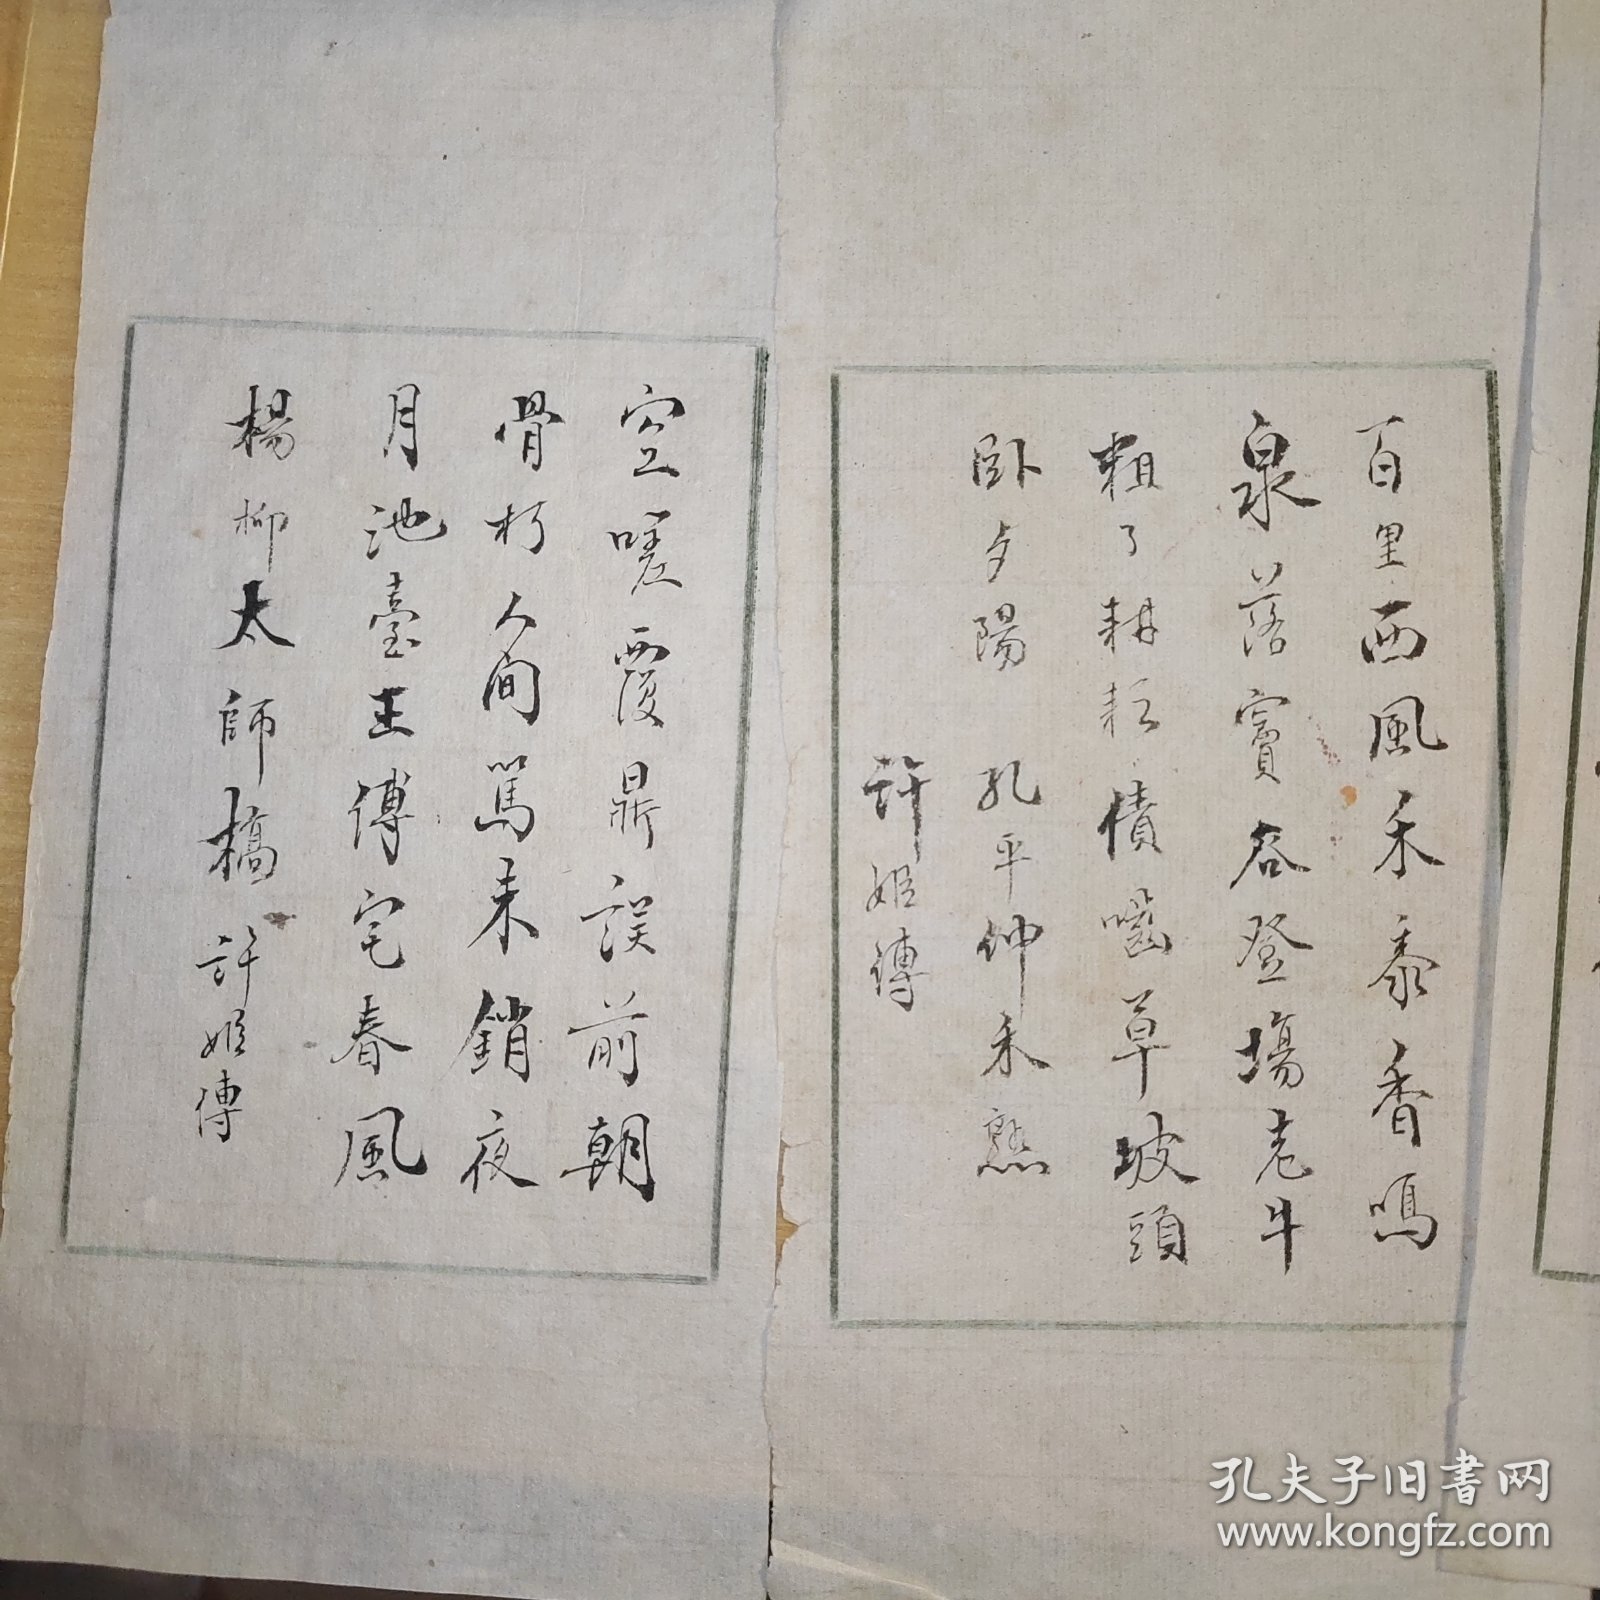 百里西風禾黍香鳴
泉落竇谷登場老牛
粗了耕耘債嚙草坡頭
臥夕陽 孔平仲禾熟
許姬傳
空嗟覆鼎誤前朝
骨朽人間罵未銷夜
月池臺王傅宅春風
楊柳太師橋 許姬傳
孔夫子旧书网
www.kongfz.com